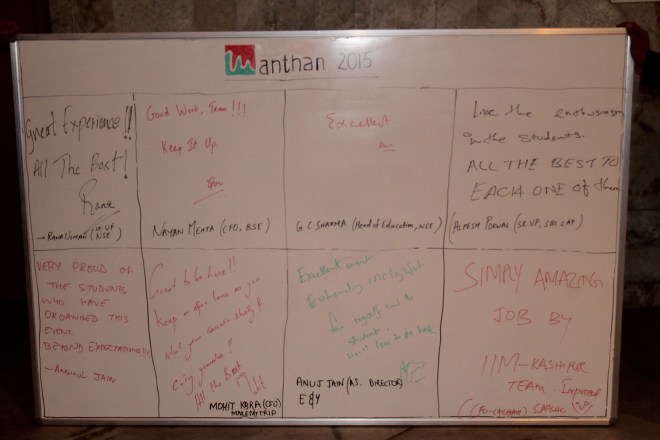 Manthan 2015
Great Experience!!
All The Best!
Rana
- Rana Usman (Sr. VP NSE)
Good Work, Team!!!
Keep It Up
Nayan Mehta (CFO, BSE)
Excellent
G.C. Sharma (Head of Education, NSE)
Like the enthusiasm
in the students.
ALL THE BEST TO
EACH ONE of them
(SR. VP, SBI CAP)
VERY PROUD OF
THE STUDENTS
WHO HAVE
ORGANISED THIS
EVENT.
BEYOND EXPECTATIONS!!!
JAIN
Great to be here!!
Keep on
what you
All the Best
MOHIT KARA (CFO)
MAKEMYTRIP
Excellent event
Extremely insightful
for myself and the
student.
ANUJ JAIN (AS. DIRECTOR)
E&Y
SIMPLY AMAZING
JOB BY
IIM-KASHIPUR
TEAM. Impressed